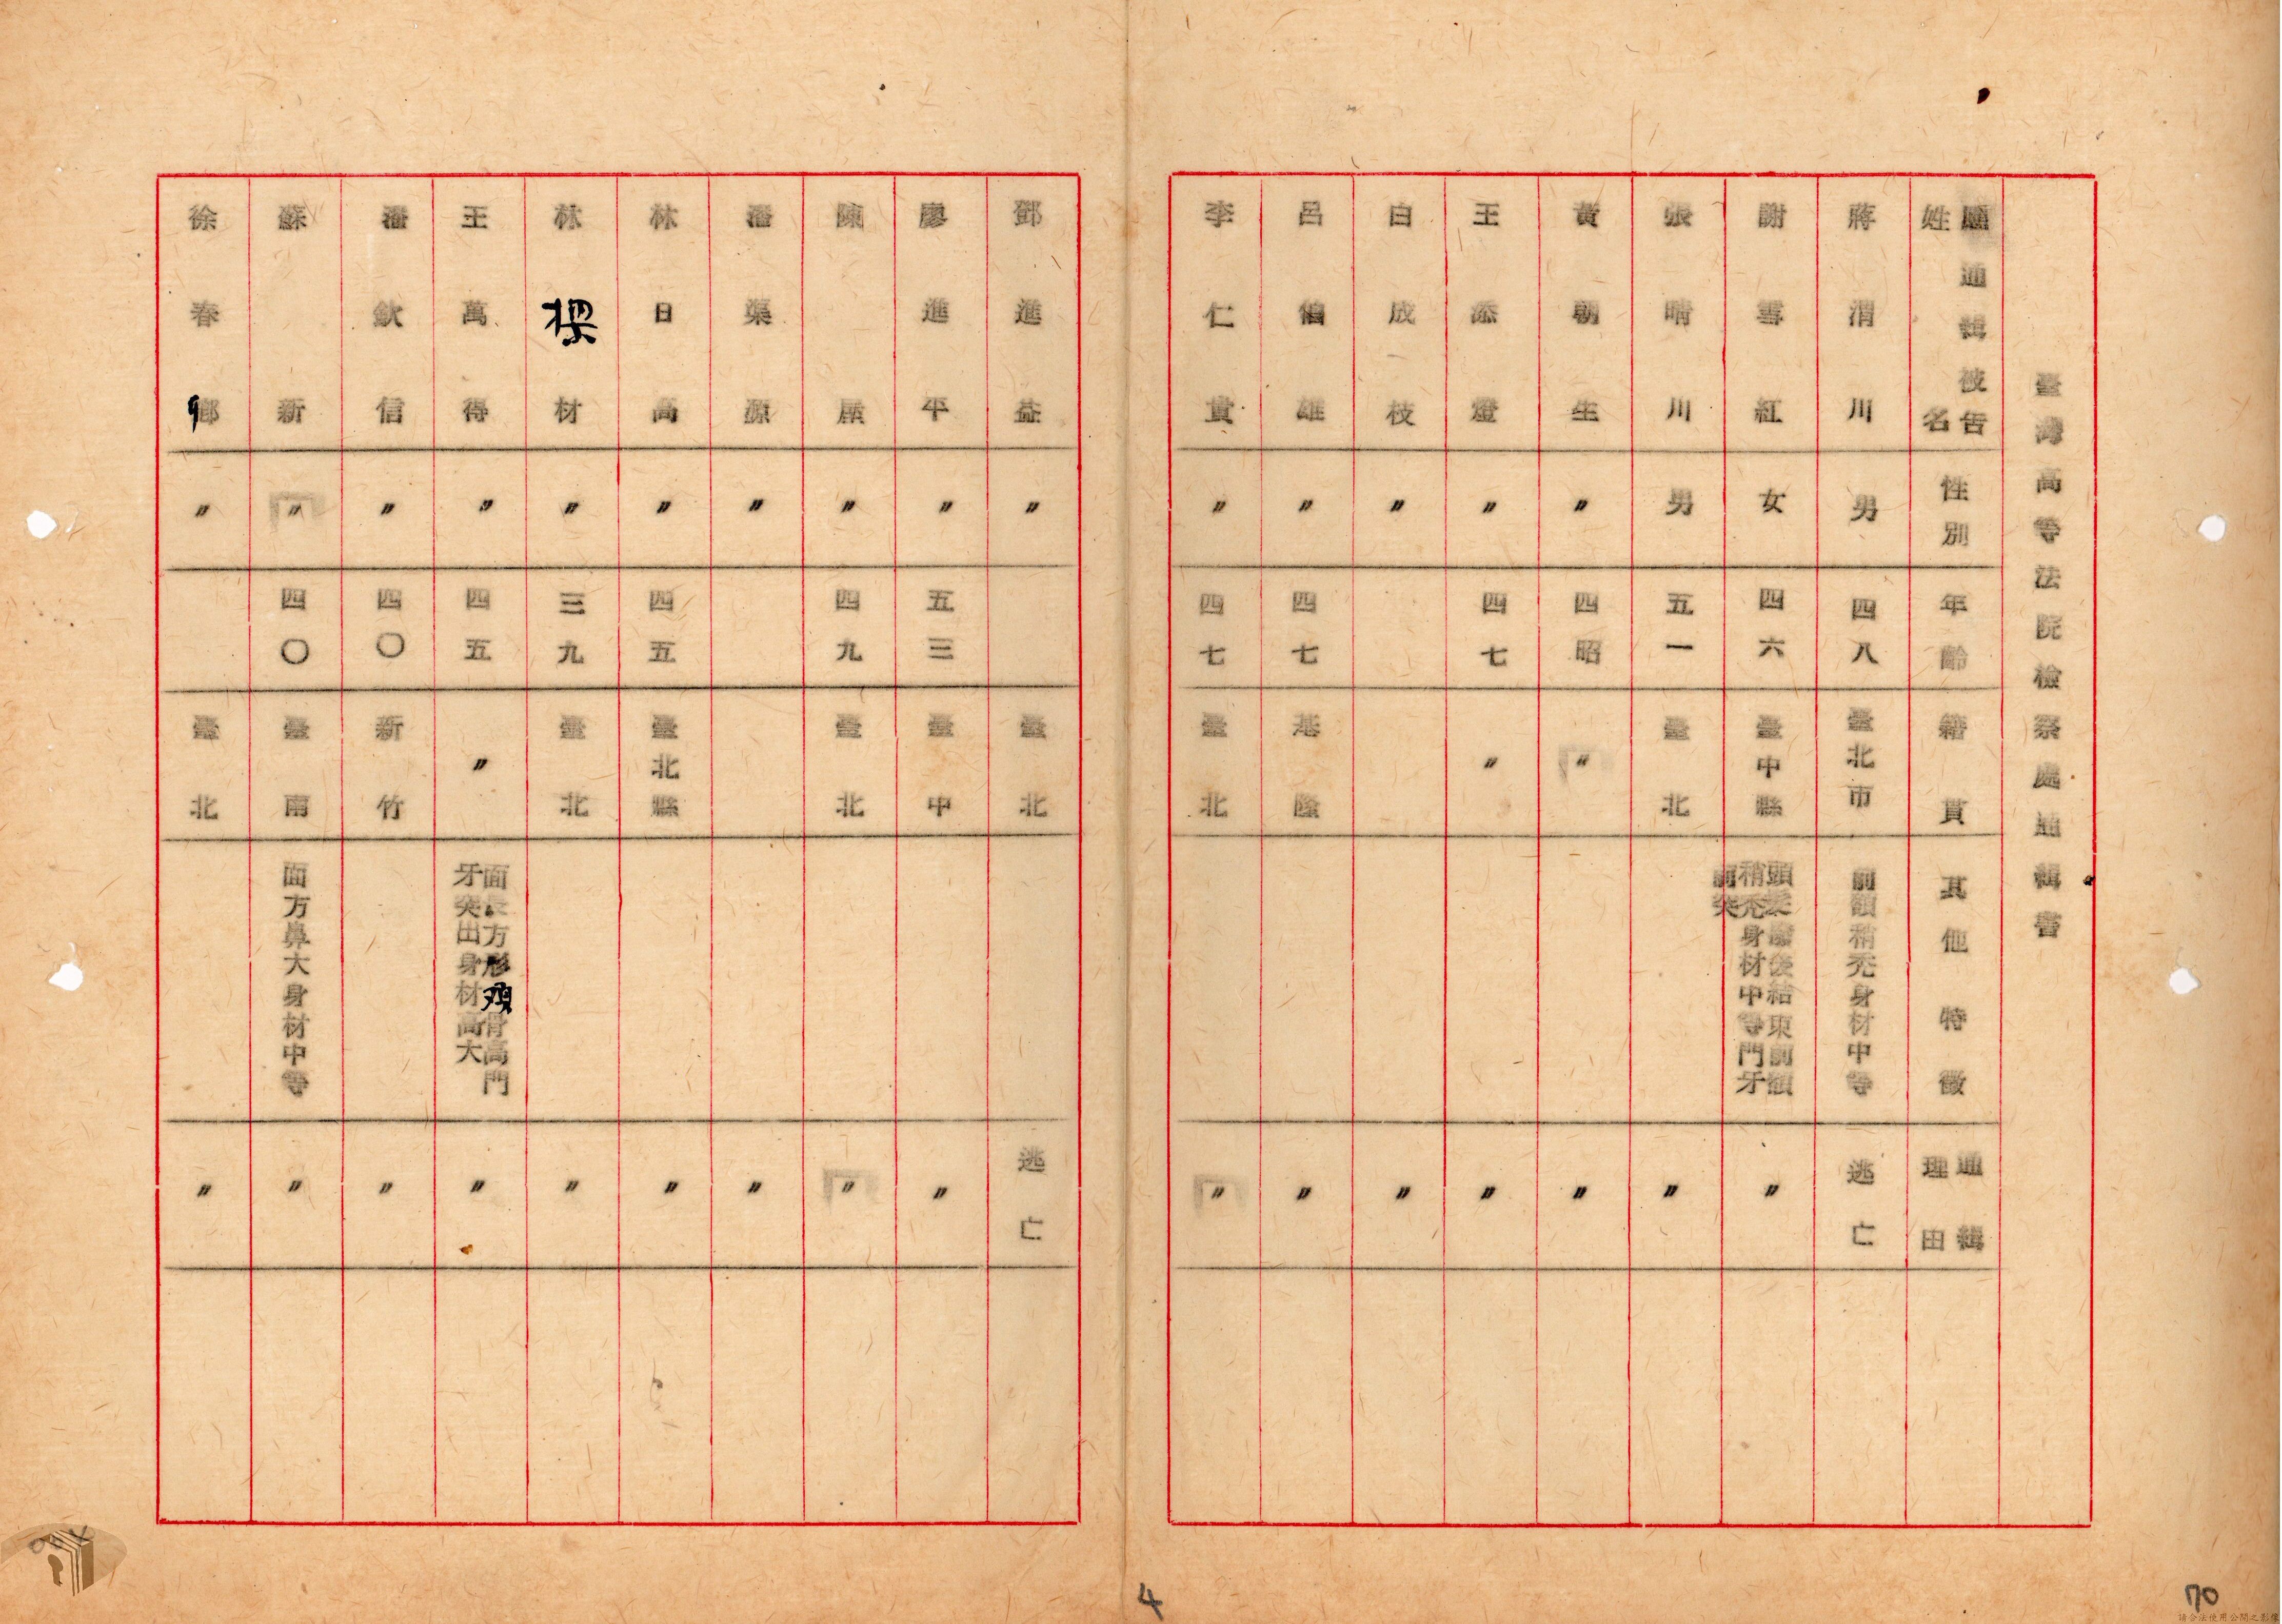 臺灣高等法院檢察處通緝書
應通緝被告姓名 性別 年齡 籍貫 其他特徵 通緝理由
蔣渭川 男 四八 臺北市 前額稍禿身材中等 逃亡
謝雪紅 女 四六 臺中縣 頭髮向後結束前額稍禿身材中等門牙前突 〃
張晴川 男 五一 臺北 〃
黃朝生 〃 四昭 〃 〃
王添燈 〃 四七 〃 〃
白成枝 〃 〃
呂伯雄 〃 四七 基隆 〃
李仁貴 〃 四七 臺北 〃
鄧進益 〃 臺北 逃亡
廖進平 〃 五三 臺中 〃
陳屋 〃 四九 臺北 〃
潘渠源 〃 〃
林日高 〃 四五 臺北縣 〃
林樑材 〃 三九 臺北 〃
王萬得 〃 四五 〃 面長方形頰骨高門牙突出身材高大 〃
潘欽信 〃 四〇 新竹 〃
蘇新 〃 四〇 臺南 面方鼻大身材中等 〃
徐春卿 〃 臺北 〃
4
70
請合法使用公開之影像